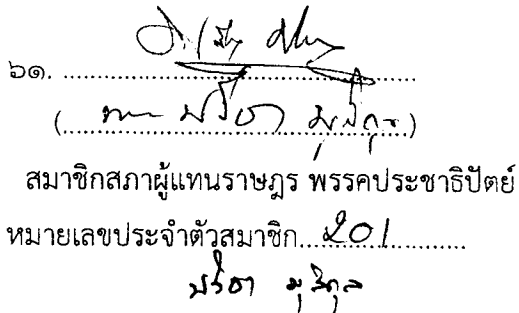 ๖๑. ........................................
(นาย ปรีชา มุสิกุล)
สมาชิกสภาผู้แทนราษฎร พรรคประชาธิปัตย์
หมายเลขประจำตัวสมาชิก....201..............
ปรีชา มุสิกุล